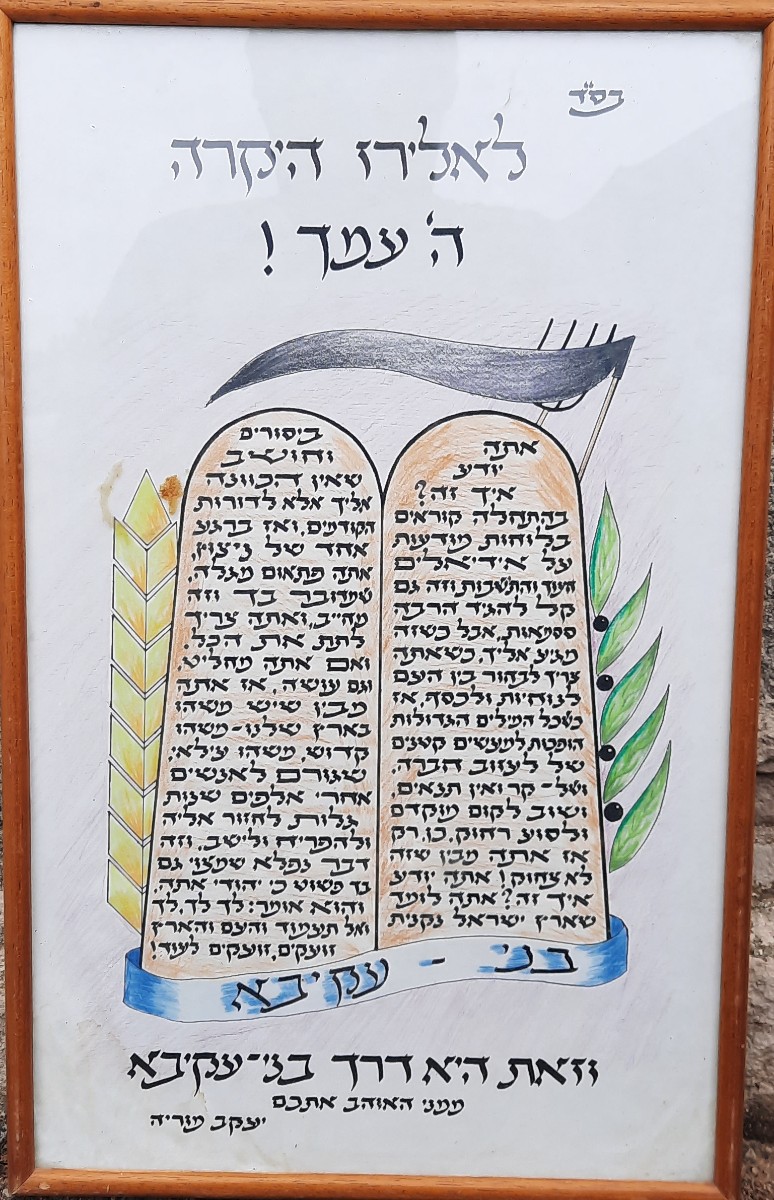 בס"ד
לאלירז היקרה
ה' עמך !
אתה
יודע
איך זה?
בהתחלה קוראים
בלוחות מודעות
על אידיאלים
העם והתשבות, וזה גם
קל להגיד הרבה
סיסמאות, אבל כשזה
מגיע אליך, כשאתה
צריך לבחור בין העם
לנוחיות ולכסף, אז
כשכל המילים הגדולות
הופכות למעשים קטנים
של לעזוב חברה,
ושל- קר ואין תנאים,
ושוב לקום מוקדם
ולסוע רחוק, כן, רק
אז אתה מבין שזה
לא צחוק! אתה יודע
איך זה? אתה לומד
שארץ ישראל נקנית
ביסורים
וחושב
שאין הכוונה
אליך אלא לדורות
הקודמים, ואז ברגע
אחד של ניצוץ,
אתה פתאום מגלה,
שמדובר בך וזה
מחייב, ואתה צריך
לתת את הכל.
ואם אתה מחליט,
וגם עושה, אז אתה
מבין שיש משהו
בארץ שלנו-משהו
קדוש, משהו עילאי,
שגורם לאנשים
אחרי אלפים שנות
גלות לחזור אליה
ולהפריח ולישב, וזה
דבר נפלא שמצוי גם
בך פשוט כי יהודי אתה,
והוא אומר: לך לך, לך
ואל תעמוד והעם והארץ
זועקים, זועקים לעוד!
בני - עקיבא
וזאת היא דרך בני-עקיבא
ממני האוהב אתכם
יעקב מוריה